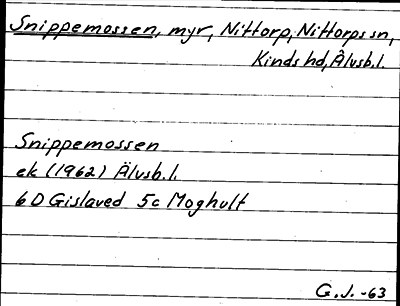 Snippemossen, myr, Nittorp, Nittorps sn,
Kinds hd, Älvsb.l.
Snippemossen
ek (1962) Älvsb.l.
6D Gislaved 5c Moghult
G.J. -63